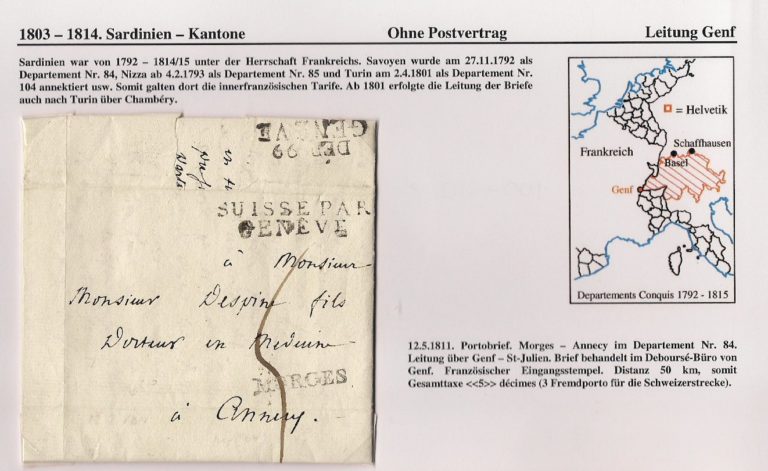 1803 – 1814. Sardinien – Kantone Ohne Postvertrag Leitung Genf
Sardinien war von 1792 – 1814/15 unter der Herrschaft Frankreichs. Savoyen wurde am 27.11.1792 als
Departement Nr. 84, Nizza ab 4.2.1793 als Departement Nr. 85 und Turin am 2.4.1801 als Departement Nr.
104 annektiert usw. Somit galten dort die innerfranzösischen Tarife. Ab 1801 erfolgte die Leitung der Briefe
auch nach Turin über Chambéry.
DEB. 99
GENEVE
SUISSE PAR
GENÈVE
à Monsieur
Monsieur Despine fils
Docteur en Medecine
MORGES
à Annecy.
= Helvetik
Schaffhausen
Frankreich
Basel
Genf
Departements Conquis 1792 - 1815
12.5.1811. Portobrief. Morges – Annecy im Departement Nr. 84.
Leitung über Genf – St-Julien. Brief behandelt im Deboursé-Büro von
Genf. Französischer Eingangsstempel. Distanz 50 km, somit
Gesamttaxe <<5>> décimes (3 Fremdporto für die Schweizerstrecke).